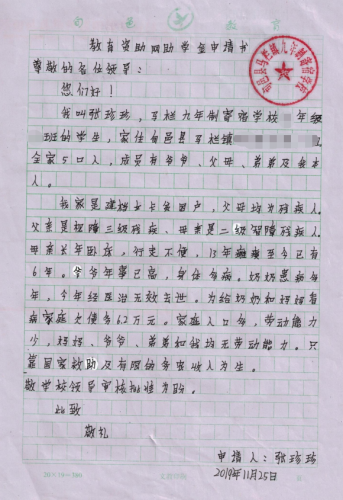 旬邑教育
教育资助网助学金申请书
尊敬的各位领导：
您们好！
我叫张珍珍，
九年制寄宿学校 年级
班的学生，家住旬邑县
全家5口人，成员有爷爷、父母、弟弟及我本
人。
我家是建档立卡贫困户，父母均为残疾人。
父亲是视障三级残疾、母亲是二级智障残疾人。
母亲长年卧床，行走不便，13年瘫痪至今已有
6年。爷爷年事已高，身体多病。奶奶患病多
年，今年经医治无效去世。为给奶奶和妈妈看
病家庭欠债务6.2万元。家庭人口多，劳动能力
少，妈妈、爷爷、弟弟和我均无劳动能力。只
靠国家救助及有限的务农收入为生。
敬学校领导审核批准为盼。
此致
敬礼
申请人：张珍珍
2019年11月25日
20×19=380